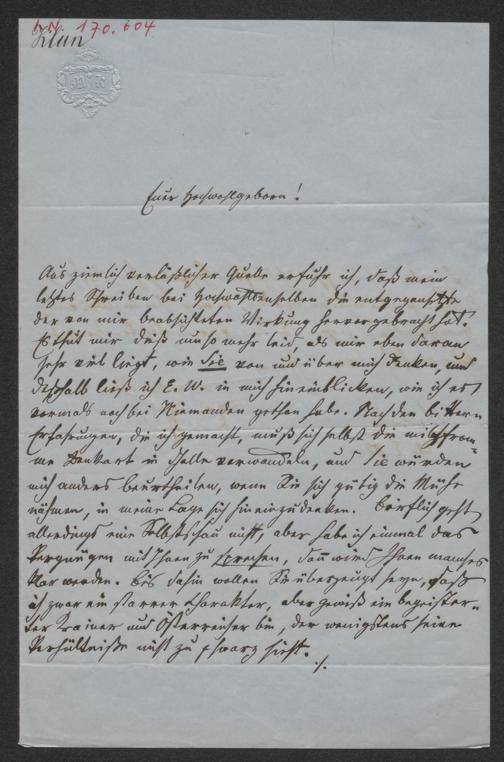 I.N. 170.604
Klun
Euer Hochwohlgeborn!
Aus ziemlich verläßlicher Quelle erfuhr ich, daß mein
letztes Schreiben bei Hochwohldenselben die entgegengesetzte
der von mir beabsichteten Wirkung hervorgebracht hat.
Es thut mir dieß um so mehr leid als mir eben daran
sehr viel liegt, wie Sie von und über mich denken, und
deßhalb ließ ich E. W. in mich hineinblicken, wie ich es
vormals noch bei Niemanden gethan habe. Nach den bittern
Erfahrungen, die ich gemacht, muß sich selbst die milchfrom-
me Denkart in Galle verwandeln, und Sie würden
mich anders beurtheilen, wenn Sie sich gütig die Mühe
nähmen, in meine Lage sich hineinzudenken. Brieflich geht
allerdings eine Selbstschau nicht, aber habe ich einmal das
Vergnügen mit Ihnen zu sprechen, dann wird Ihnen manches
klar werden. Bis dahin wollen Sie überzeugt seyn, daß
ich zwar ein starrer Charakter, aber gewiß ein begeister-
ter Krainer und Österreicher bin, der wenigstens seine
Verhältniße nicht zu schwarz sieht.
./.